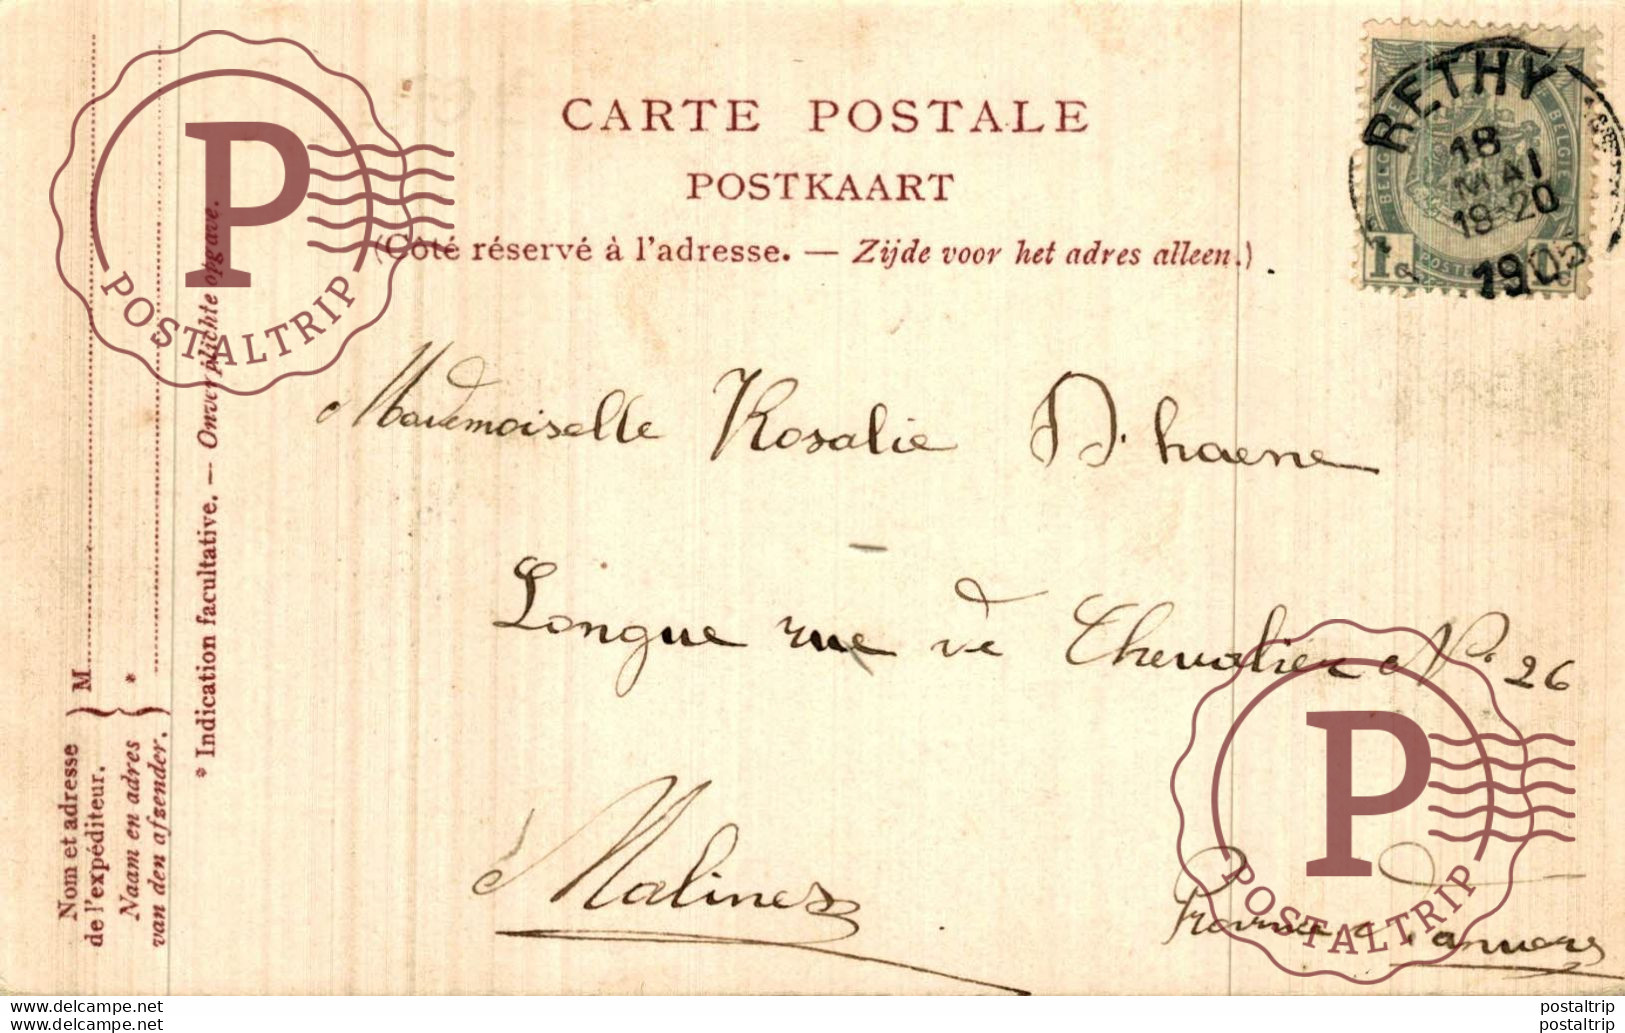 CARTE POSTALE
POSTKAART
(Côté réservé à l'adresse. — Zijde voor het adres alleen.)
RETHY
18
MAI
19-20
1905
BELGIQUE
BELGIË
POSTE
1c
Mademoiselle Rosalie D'haene
Longue rue de Chevalier No. 26
Malines
Province d'anvers
M
*
Nom et adresse
de l'expéditeur.
Naam en adres
van den afzender.
* Indication facultative. — Onverplichte opgave.
P
POSTALTRIP
P
POSTALTRIP
www.delcampe.net
postaltrip
www.delcampe.net
postaltrip